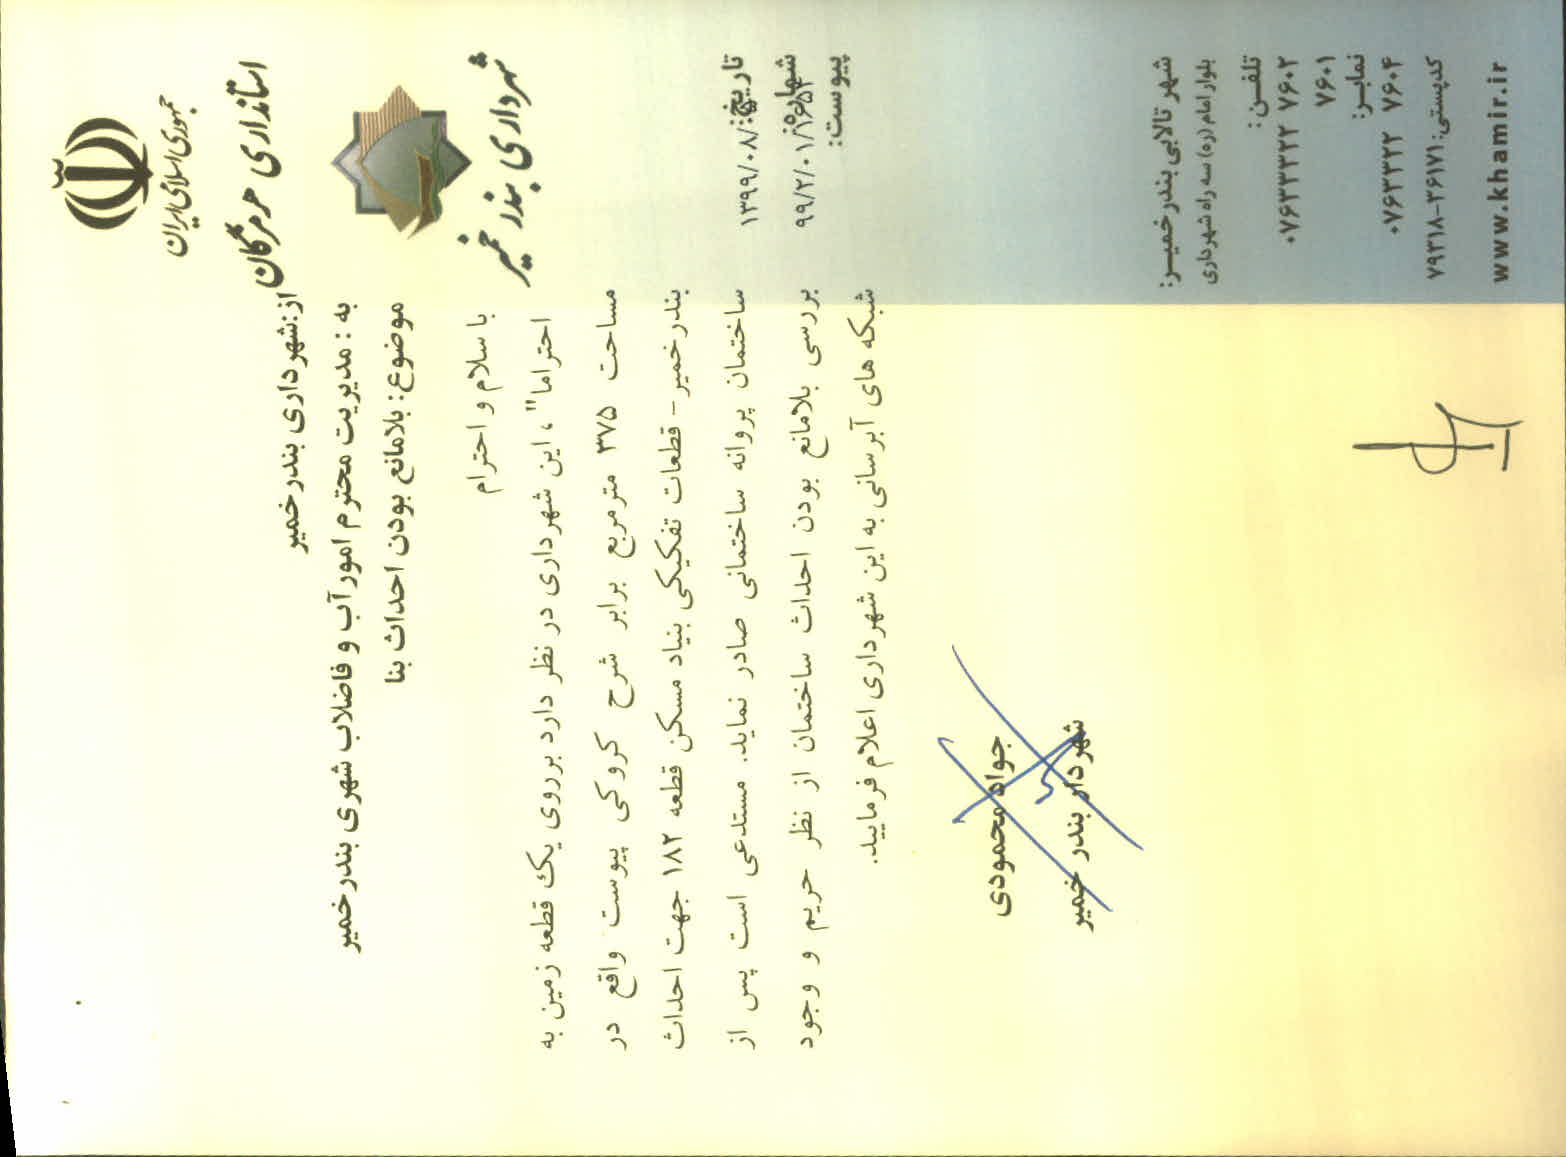 جمهوری اسلامی ایران
استانداری هرمزگان
شهرداری بندر خمیر
تاریخ: ۱۳۹۹/۰۸/
شماره: ۹۹/۲/۰۱/۱۶۵۴
پیوست:
از:شهرداری بندرخمیر
به : مدیریت محترم امور آب و فاضلاب شهری بندرخمیر
موضوع: بلامانع بودن احداث بنا
با سلام و احترام
احتراما" ، این شهرداری در نظر دارد برروی یک قطعه زمین به
مساحت ۳۷۵ مترمربع برابر شرح کروکی پیوست واقع در
بندرخمیر - قطعات تفکیکی بنیاد مسکن قطعه ۱۸۲ جهت احداث
ساختمان پروانه ساختمانی صادر نماید. مستدعی است پس از
بررسی بلامانع بودن احداث ساختمان از نظر حریم و وجود
شبکه های آبرسانی به این شهرداری اعلام فرمایید.
جواد محمودی
شهردار بندر خمیر
شهر تالابی بندرخمیـر:
بلوار امام (ره) سه راه شهرداری
تلفـن:
۰۷۶۳۳۳۲۲ ۷۶۰۲
۷۶۰۱
نمابـر:
۰۷۶۳۳۲۲ ۷۶۰۴
کدپستی: ۷۹۳۱۸-۲۶۱۷۱
www.khamir.ir